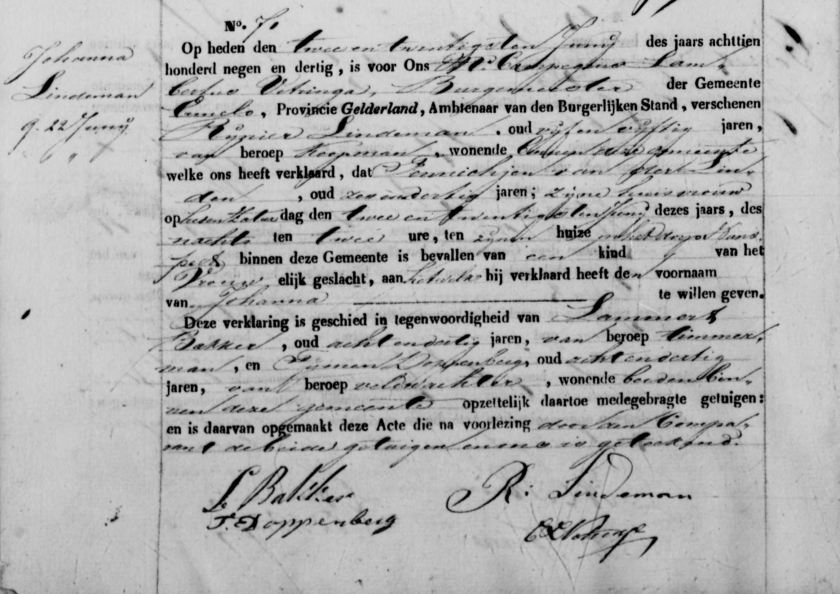 No. 71
Johanna
Lindeman
g. 22 Junij
Op heden den twee en twintigsten Junij des jaars achttien
honderd negen en dertig, is voor Ons Mr. Campegius Lam
bertus Vitringa, Burgemeester der Gemeente
Ermelo, Provincie Gelderland, Ambtenaar van den Burgerlijken Stand, verschenen
Reinier Lindeman, oud vijf en vijftig jaren,
van beroep Koopman, wonende binnen deze gemeente
welke ons heeft verklaard, dat Hennichjen van der Lin-
den, oud zes en dertig jaren; zijne huisvrouw
op heden Zaterdag den twee en twintigsten Junij dezes jaars, des
nachts ten twee ure, ten zijnen huize in het dorp Nuns-
peet binnen deze Gemeente is bevallen van een kind van het
Vrouwelijk geslacht, aan hetwelk hij verklaard heeft den voornaam
van Johanna te willen geven.
Deze verklaring is geschied in tegenwoordigheid van Lammert
Bakker, oud acht en dertig jaren, van beroep timmer-
man, en Tijmen Doppenberg, oud acht en dertig
jaren, van beroep veldwachter, wonende beiden bin-
nen deze gemeente opzettelijk daartoe medegebragte getuigen:
en is daarvan opgemaakt deze Acte die na voorlezing door den Compa-
rant de beide getuigen en ons is geteekend.
L Bakker
R: Lindeman
T. Doppenberg